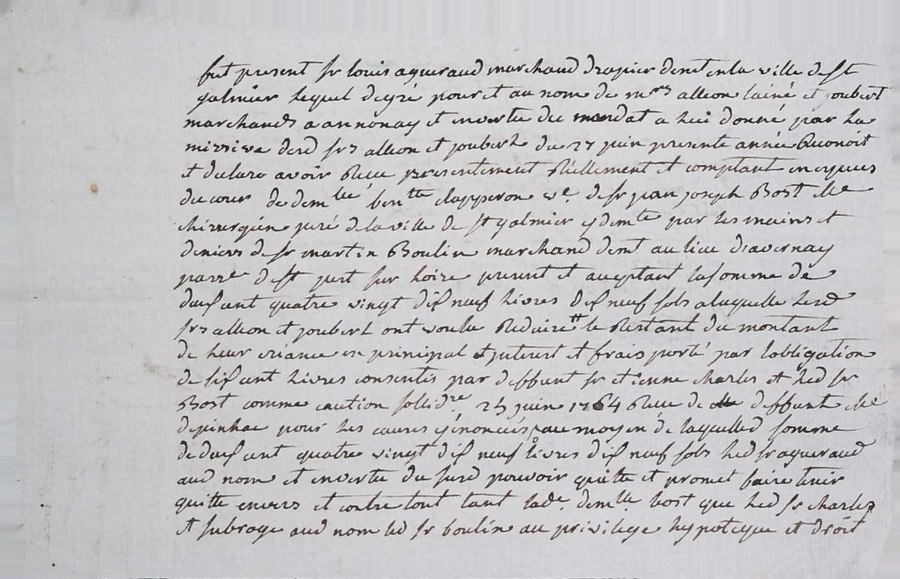 fut present sr louis agueraud marchand drapier demt en la ville de st
galmier lequel de gré pour et au nom de mrs alleon lainé et joubert
marchands a annonay et en vertu du mandat a lui donné par la
missive desd srs alleon et joubert du 27 juin presente année Reconoit
et declare avoir Reçu presentement Réellement et comptant en especes
du cours de demlle bentte clapeyron ve de sr jean joseph Bost Me
chirurgien juré de la ville de st galmier y demte par les mains et
deniers de sr martin Boulin marchand demt au lieu
parre de st just sur Loire present et acceptant la somme de
deux cent quatre vingt dix neuf livres dix neuf sols a laquelle lesd
srs alleon et joubert ont voulu Reduire le Restant du montant
de leur créance en principal interest et frais porté par lobligation
de six cent livres consentie par deffunt sr etienne charles et led sr
Bost comme caution sollidre, 25 juin 1764 Reçue de deffunt Me
depinhac pour les causes y enoncées, au moyen de laquelle somme
de deux cent quatre vingt dix neuf livres dix neuf sols led sr agueraud
aud nom et en vertu du susd pouvoir quitte et promet faire tenir
quitte envers et contre tout tant lade demlle bost que led sr charles
et subroge aud nom led sr boulin au privilege hypoteque et droit